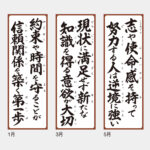 約束や時間を守ることが
信頼関係を築く第一歩
現状に満足せず新たな
知識を得る意欲が大切
志や使命感を持って
努力する人は逆境に強い
1月
3月
5月